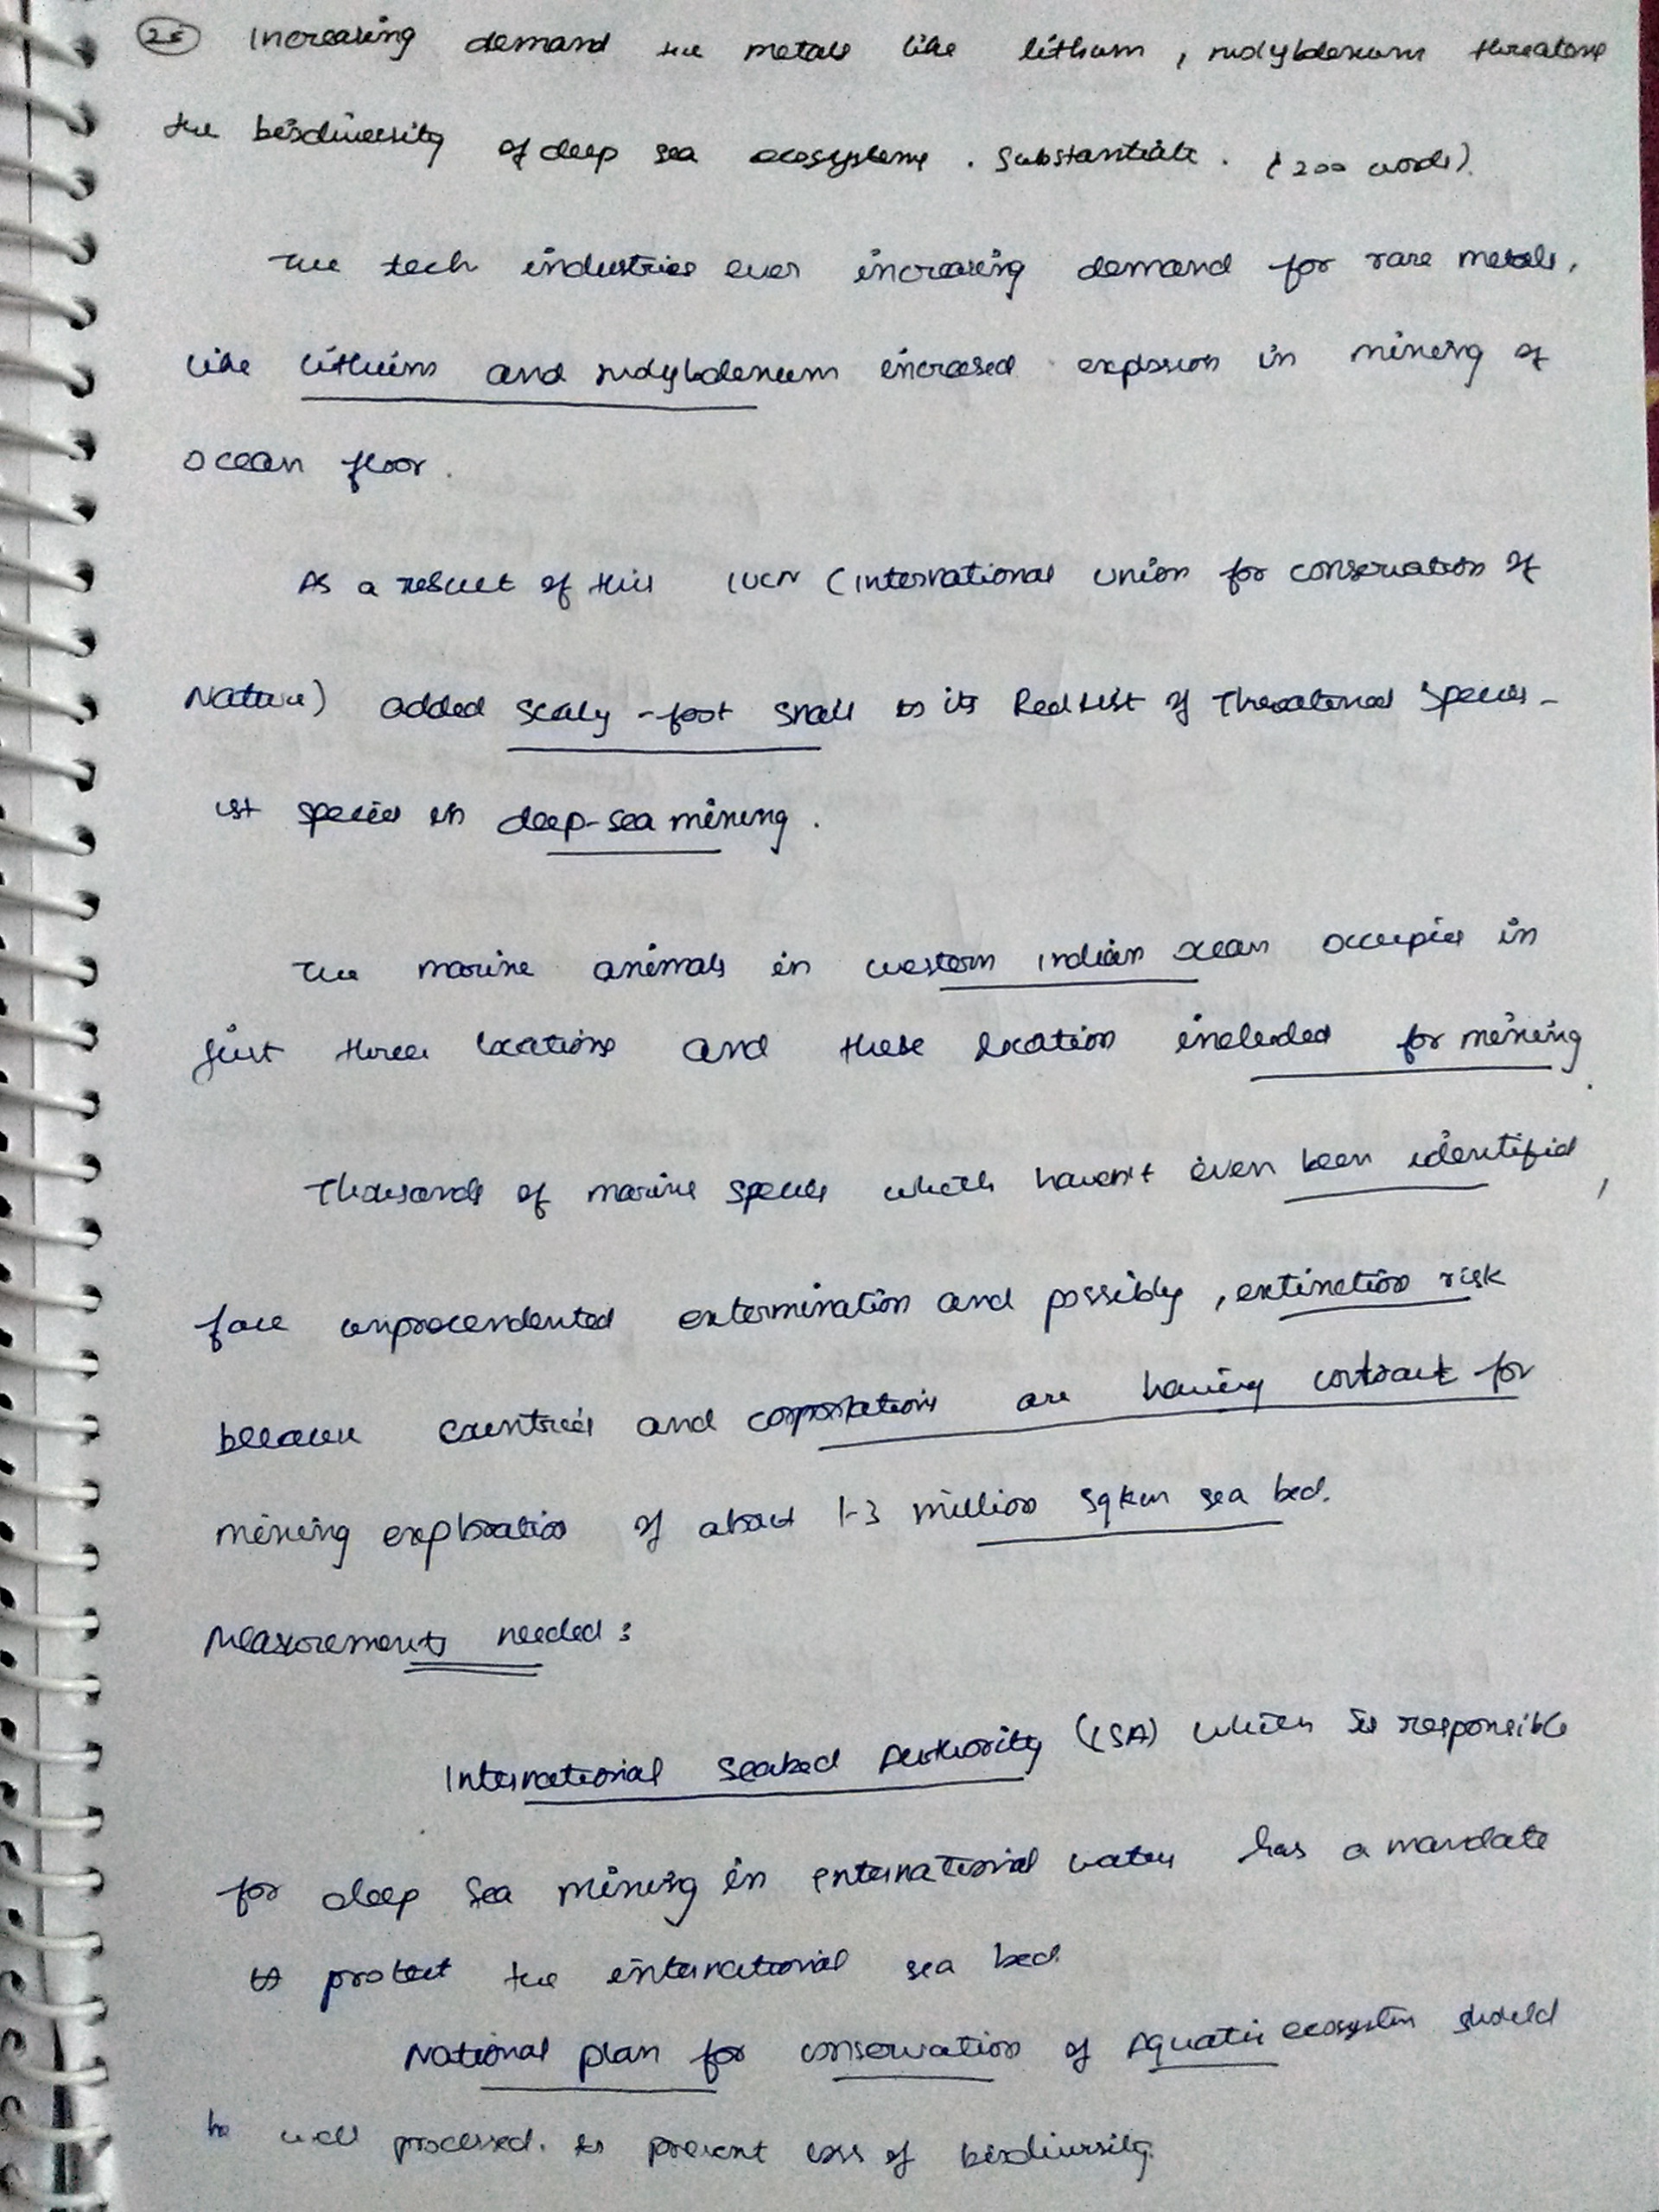 25 Increasing demand the metals like lithum, molybdenum threatens
the biodiversity of deep sea ecosystems. Substantiate. (200 words).
The tech industries ever increasing demand for rare metals,
like lithium and molybdenum increased explosion in mining of
ocean floor.
As a result of this IUCN (International Union for conservation of
Nature) added scaly-foot snail to its Red List of Threatened Species -
1st species in deep-sea mining.
The marine animals in western Indian ocean occupies in
just three locations and these location included for mining.
Thousands of marine species which haven't even been identified,
face unprecendented extermination and possibly, extinction risk
because countries and corporations are having contract for
mining exploration of about 1-3 million sqkm sea bed.
Measurements needed:
International Seabed Authority (ISA) which is responsible
for deep sea mining in international water has a mandate
to protect the international sea bed.
National plan for conservation of Aquatic ecosystem should
be well processed. to prevent loss of biodiversity.